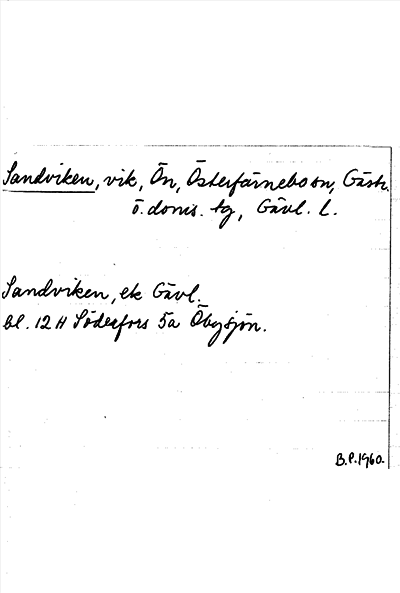 Sandviken, vik, Ön, Österfärnebo sn, Gästr.
ö. doms. tg, Gävl. l.
Sandviken, ek Gävl.
bl. 12 H Söderfors 5a Öbysjön.
B.P. 1960.